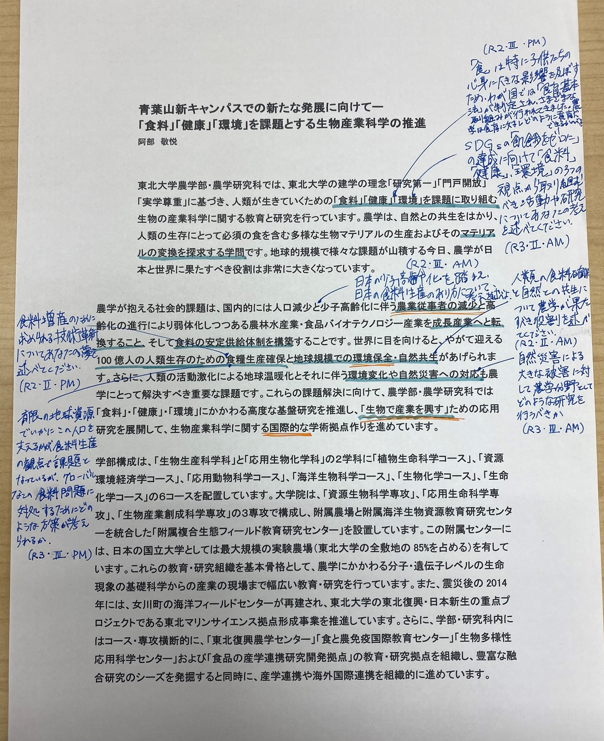 青葉山新キャンパスでの新たな発展に向けて―
「食料」「健康」「環境」を課題とする生物産業科学の推進
阿部 敬悦
東北大学農学部・農学研究科では、東北大学の建学の理念「研究第一」「門戸開放」
「実学尊重」に基づき、人類が生きていくための「食料」「健康」「環境」を課題に取り組む
生物の産業科学に関する教育と研究を行っています。農学は、自然との共生をはかり、
人類の生存にとって必須の食を含む多様な生物マテリアルの生産およびそのマテリア
ルの変換を探求する学問です。地球的規模で様々な課題が山積する今日、農学が日
本と世界に果たすべき役割は非常に大きくなっています。
農学が抱える社会的課題は、国内的には人口減少と少子高齢化に伴う農業従事者の減少と高
齢化の進行により弱体化しつつある農林水産業・食品バイオテクノロジー産業を成長産業へと転
換すること、そして食料の安定供給体制を構築することです。世界に目を向けると、やがて迎える
100 億人の人類生存のための食糧生産確保と地球規模での環境保全・自然共生があげられま
す。さらに、人類の活動激化による地球温暖化とそれに伴う環境変化や自然災害への対応も農
学にとって解決すべき重要な課題です。これらの課題解決に向けて、農学部・農学研究科では
「食料」・「健康」・「環境」にかかわる高度な基盤研究を推進し、「生物で産業を興す」ための応用
研究を展開して、生物産業科学に関する国際的な学術拠点作りを進めています。
学部構成は、「生物生産科学科」と「応用生物化学科」の2学科に「植物生命科学コース」、「資源
環境経済学コース」、「応用動物科学コース」、「海洋生物科学コース」、「生物化学コース」、「生命
化学コース」の6コースを配置しています。大学院は、「資源生物科学専攻」、「応用生命科学専
攻」、「生物産業創成科学専攻」の3専攻で構成し、附属農場と附属海洋生物資源教育研究センタ
ーを統合した「附属複合生態フィールド教育研究センター」を設置しています。この附属センターに
は、日本の国立大学としては最大規模の実験農場（東北大学の全敷地の 85%を占める）を有して
います。これらの教育・研究組織を基本骨格として、農学にかかわる分子・遺伝子レベルの生命
現象の基礎科学からの産業の現場まで幅広い教育・研究を行っています。また、震災後の 2014
年には、女川町の海洋フィールドセンターが再建され、東北大学の東北復興・日本新生の重点プ
ロジェクトである東北マリンサイエンス拠点形成事業を推進しています。さらに、学部・研究科内に
はコース・専攻横断的に、「東北復興農学センター」「食と農免疫国際教育センター」「生物多様性
応用科学センター」および「食品の産学連携研究開発拠点」の教育・研究拠点を組織し、豊富な融
合研究のシーズを発掘すると同時に、産学連携や海外国際連携を組織的に進めています。
(R2・Ⅲ・PM)
「食」は特に子供たちの
心身に大きな影響を及ぼす
ため、わが国では「食育基本
法」が制定され、
SDGsの「飢餓をゼロに」
の達成に向けて「食料」
「健康」「環境」の3つの
視点から取り組む
べき 研究
についてあなたの考え
を述べてください。
(R3・Ⅱ・AM)
(R2・Ⅱ・AM)
日本の少子高齢化を踏まえ、
日本の食料生産のあり方について
人類への食料
と自然との共生に
ついて農学が果た
すべき役割を述べ
てください。
(R2・Ⅱ・AM)
自然災害による
大きな被害に対
して農学分野として
どのような研究を
行うべきか
(R3・Ⅱ・AM)
食料増産のために
求められる技術
についてあなたの考え
述べてください。
(R2・Ⅱ・PM)
有限の地球資源
でいかにこの人口を
支えるかが、食料生産
の観点で課題と
なっているが、グローバル
な 食料問題に
対処するためにどの
ような方策が考え
られるか。
(R3・Ⅲ・PM)